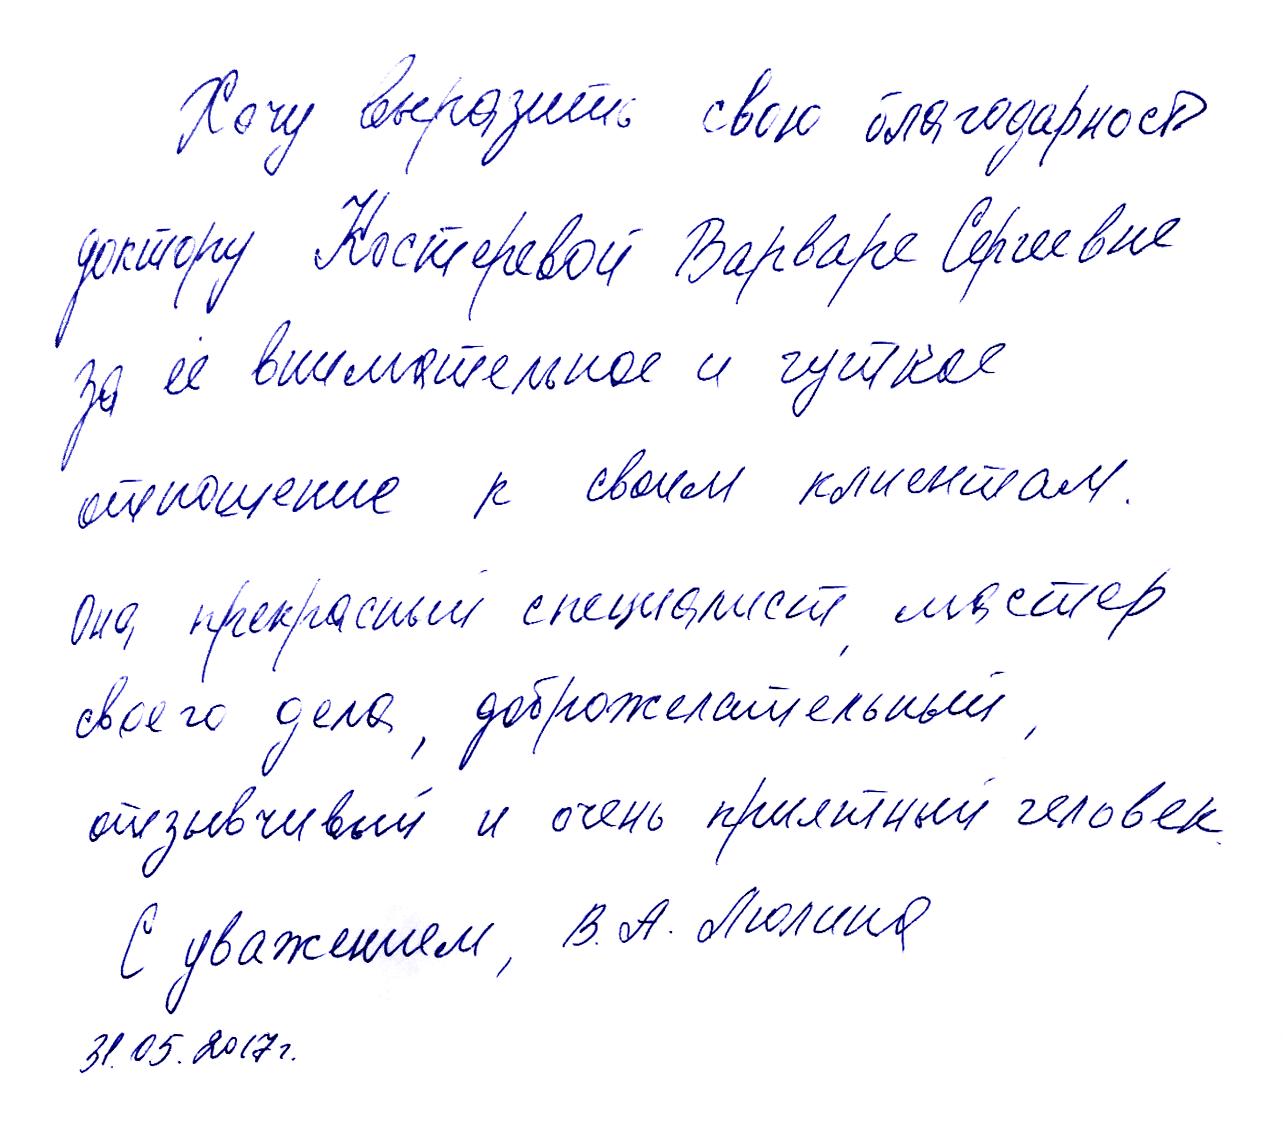 Хочу выразить свою благодарность
доктору Костеревой Варваре Сергеевне
за её внимательное и чуткое
отношение к своим клиентам.
Она прекрасный специалист, мастер
своего дела, доброжелательный,
отзывчивый и очень приятный человек.
С уважением, В.А. Люлина
31.05.2017г.